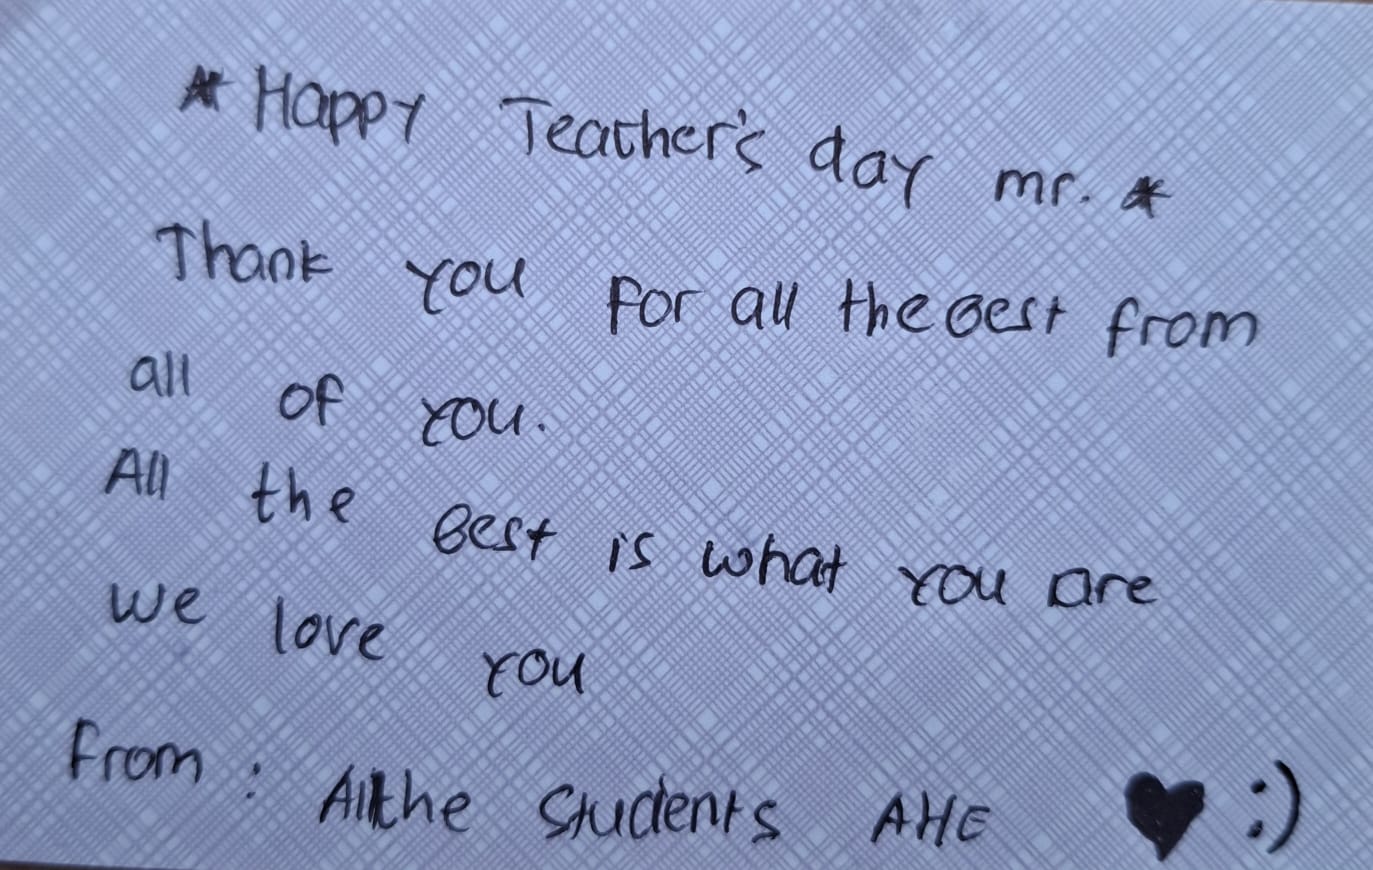 * Happy Teather's day mr. *
Thank you For all the best from
all of you.
All the best is what you are
we love you
From : All the Students AHE ♥ :)